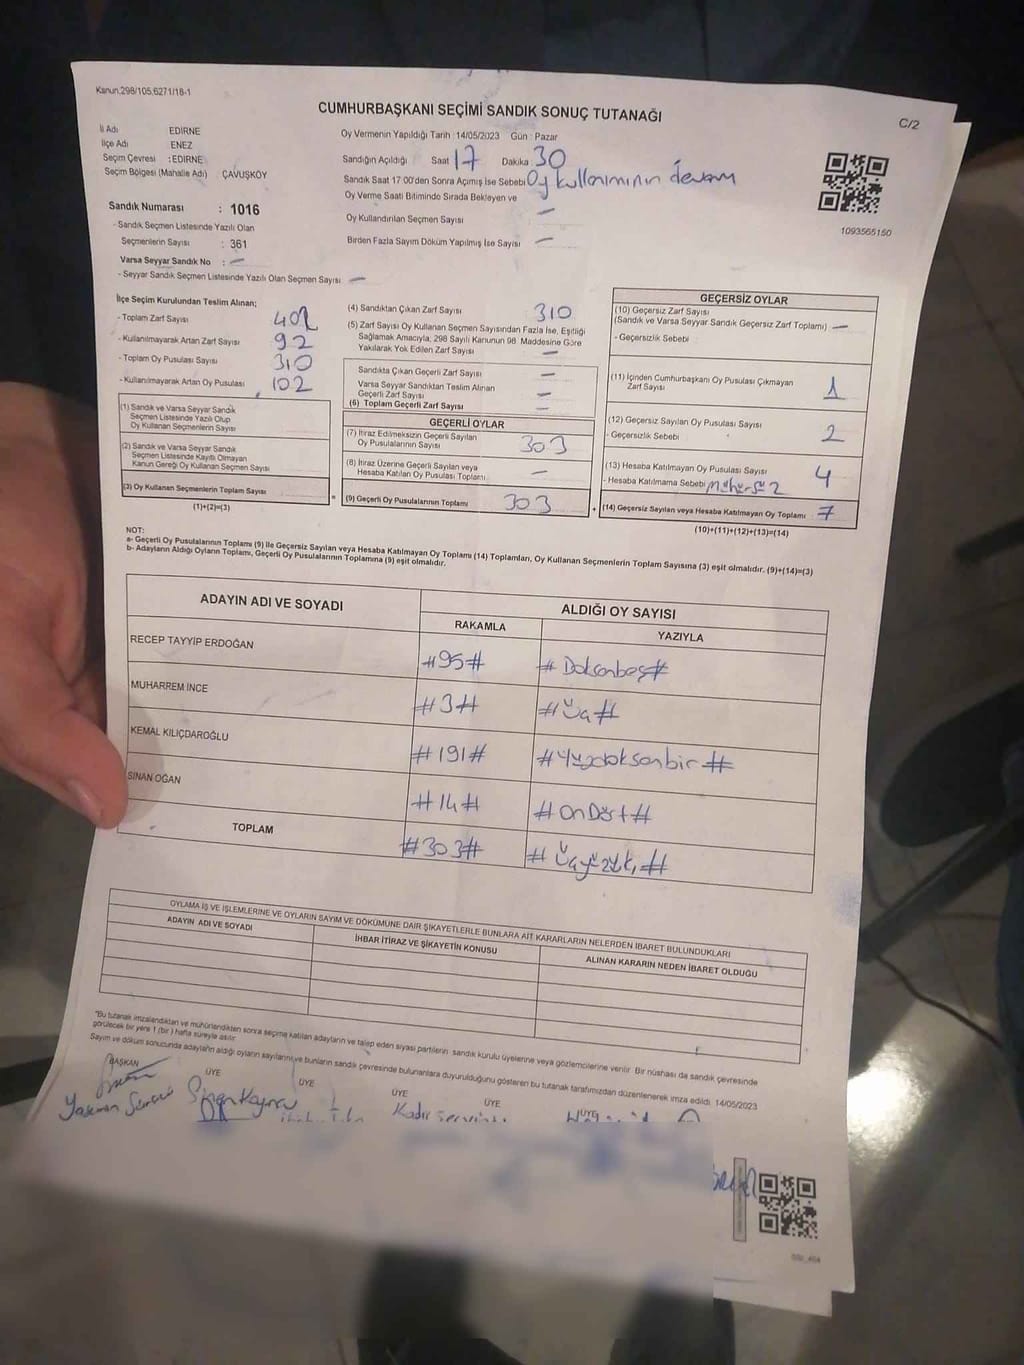 Kanun.298/105.6271/18-1
CUMHURBAŞKANI SEÇİMİ SANDIK SONUÇ TUTANAĞI
C/2
İl Adı EDİRNE
İlçe Adı ENEZ
Seçim Çevresi : EDİRNE
Seçim Bölgesi (Mahalle Adı) : ÇAVUŞKÖY
Sandık Numarası : 1016
- Sandık Seçmen Listesinde Yazılı Olan
Seçmenlerin Sayısı : 361
Varsa Seyyar Sandık No : —
- Seyyar Sandık Seçmen Listesinde Yazılı Olan Seçmen Sayısı —
Oy Vermenin Yapıldığı Tarih : 14/05/2023 Gün : Pazar
Sandığın Açıldığı Saat 17 Dakika 30
Sandık Saat 17:00'den Sonra Açılmış İse Sebebi Oy kullanımının devam
Oy Verme Saati Bitiminde Sırada Bekleyen ve
Oy Kullandırılan Seçmen Sayısı —
Birden Fazla Sayım Döküm Yapılmış İse Sayısı —
1093565150
İlçe Seçim Kurulundan Teslim Alınan;
- Toplam Zarf Sayısı 402
- Kullanılmayarak Artan Zarf Sayısı 92
- Toplam Oy Pusulası Sayısı 310
- Kullanılmayarak Artan Oy Pusulası 102
(1) Sandık ve Varsa Seyyar Sandık
Seçmen Listesinde Yazılı Olup
Oy Kullanan Seçmenlerin Sayısı
(2) Sandık ve Varsa Seyyar Sandık
Seçmen Listesinde Kayıtlı Olmayan
Kanun Gereği Oy Kullanan Seçmen Sayısı
(3) Oy Kullanan Seçmenlerin Toplam Sayısı
(1)+(2)=(3)
=
(4) Sandıktan Çıkan Zarf Sayısı 310
(5) Zarf Sayısı Oy Kullanan Seçmen Sayısından Fazla İse, Eşitliği
Sağlamak Amacıyla; 298 Sayılı Kanunun 98. Maddesine Göre
Yakılarak Yok Edilen Zarf Sayısı —
Sandıkta Çıkan Geçerli Zarf Sayısı —
Varsa Seyyar Sandıktan Teslim Alınan
Geçerli Zarf Sayısı —
(6) Toplam Geçerli Zarf Sayısı —
GEÇERLİ OYLAR
(7) İtiraz Edilmeksizin Geçerli Sayılan
Oy Pusulalarının Sayısı 303
(8) İtiraz Üzerine Geçerli Sayılan veya
Hesaba Katılan Oy Pusulası Toplamı —
(9) Geçerli Oy Pusulalarının Toplamı 303
+
GEÇERSİZ OYLAR
(10) Geçersiz Zarf Sayısı
(Sandık ve Varsa Seyyar Sandık Geçersiz Zarf Toplamı) —
- Geçersizlik Sebebi
(11) İçinden Cumhurbaşkanı Oy Pusulası Çıkmayan
Zarf Sayısı 1
(12) Geçersiz Sayılan Oy Pusulası Sayısı 2
- Geçersizlik Sebebi
(13) Hesaba Katılmayan Oy Pusulası Sayısı 4
- Hesaba Katılmama Sebebi Mühürsüz
(14) Geçersiz Sayılan veya Hesaba Katılmayan Oy Toplamı 7
(10)+(11)+(12)+(13)=(14)
NOT:
a- Geçerli Oy Pusulalarının Toplamı (9) ile Geçersiz Sayılan veya Hesaba Katılmayan Oy Toplamı (14) Toplamları, Oy Kullanan Seçmenlerin Toplam Sayısına (3) eşit olmalıdır. (9)+(14)=(3)
b- Adayların Aldığı Oyların Toplamı, Geçerli Oy Pusulalarının Toplamına (9) eşit olmalıdır.
ADAYIN ADI VE SOYADI
ALDIĞI OY SAYISI
RAKAMLA YAZIYLA
RECEP TAYYİP ERDOĞAN #95# #Doksanbeş#
MUHARREM İNCE #3# #Üç#
KEMAL KILIÇDAROĞLU #191# #Yüzdoksanbir#
SİNAN OĞAN #14# #OnDört#
TOPLAM #303#
OYLAMA İŞ VE İŞLEMLERİNE VE OYLARIN SAYIM VE DÖKÜMÜNE DAİR ŞİKAYETLERLE BUNLARA AİT KARARLARIN NELERDEN İBARET BULUNDUKLARI
ADAYIN ADI VE SOYADI
İHBAR İTİRAZ VE ŞİKAYETİN KONUSU
ALINAN KARARIN NEDEN İBARET OLDUĞU
"Bu tutanak imzalandıktan ve mühürlendikten sonra seçime katılan adayların ve talep eden siyasi partilerin sandık kurulu üyelerine veya gözlemcilerine verilir. Bir nüshası da sandık çevresinde
görülecek bir yere 1 (bir) hafta süreyle asılır.
Sayım ve döküm sonucunda adayların aldığı oyların sayılarını ve bunların sandık çevresinde bulunanlara duyurulduğunu gösteren bu tutanak tarafımızdan düzenlenerek imza edildi. 14/05/2023
BAŞKAN ÜYE ÜYE ÜYE ÜYE ÜYE
Kadir